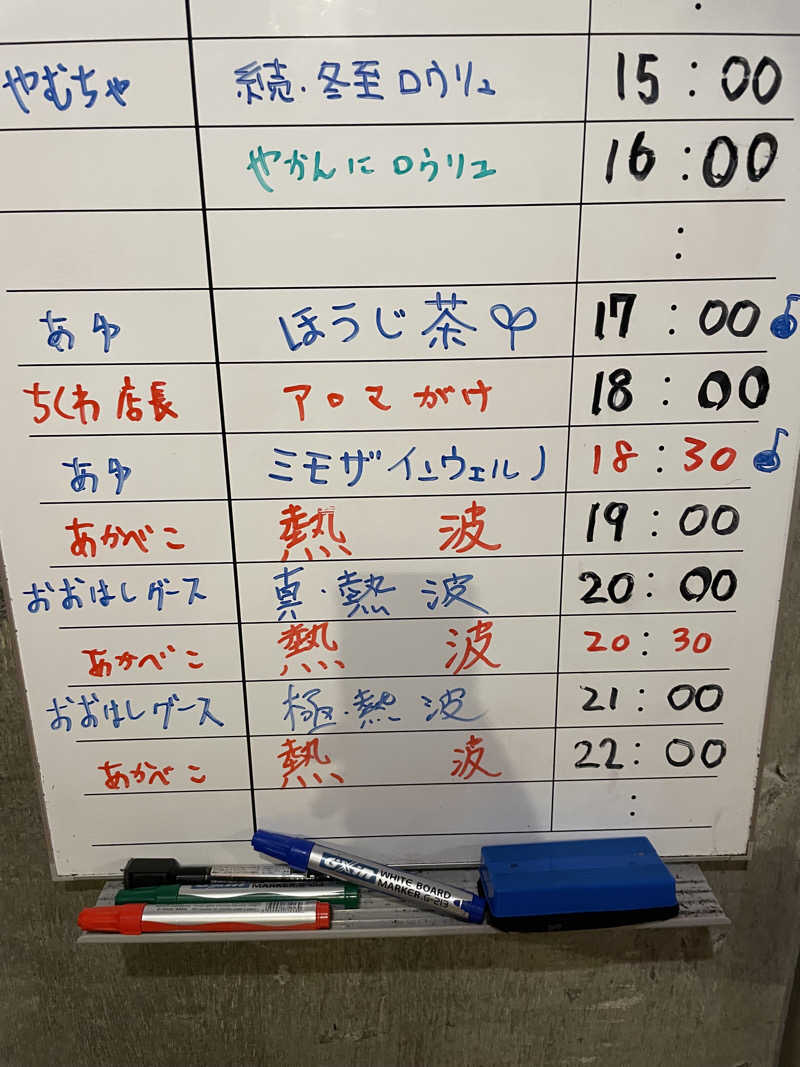 やむちゃ 続・冬至ロウリュ 15:00
やかんにロウリュ 16:00
:
あゆ ほうじ茶 17:00
ちくわ店長 アロマがけ 18:00
あゆ ミモザインウェルノ 18:30
あかべこ 熱波 19:00
おおはしグース 真・熱波 20:00
あかべこ 熱波 20:30
おおはしグース 極・熱波 21:00
あかべこ 熱波 22:00
:
WHITE BOARD
MARKER.G-213